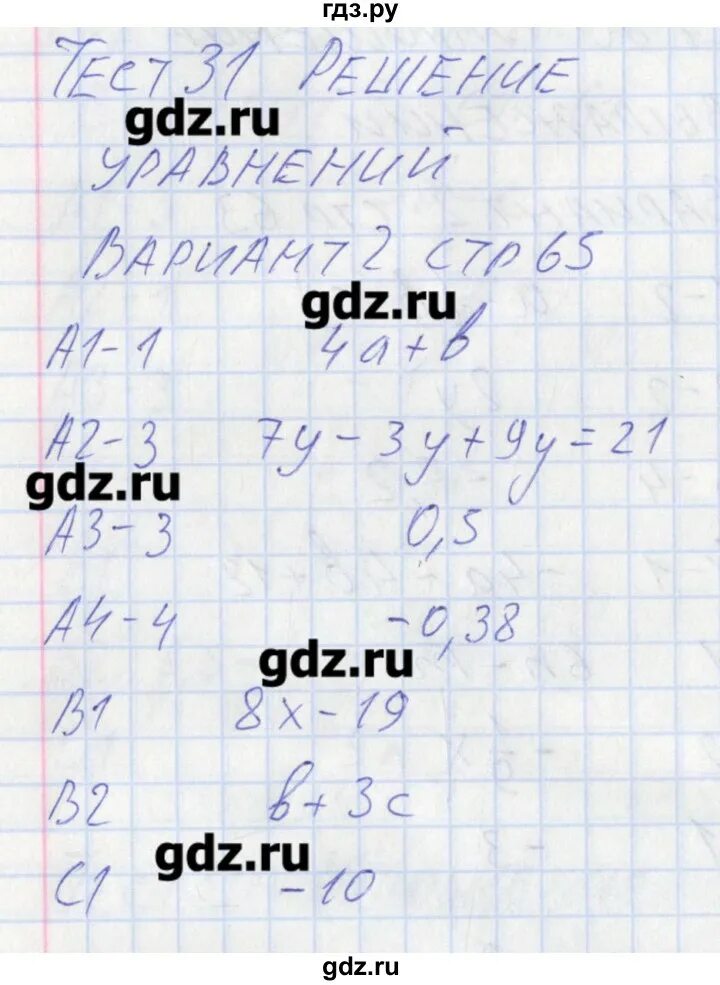 гдз.ру
ТЕСТ 31 РЕШЕНИЕ
gdz.ru
УРАВНЕНИЙ
ВАРИАНТ 2 СТР 65
gdz.ru
А1-1 4a+b
А2-3 7y-3y+9y=21
gdz.ru
А3-3 0,5
А4-4 -0,38
gdz.ru
В1 8x-19
В2 b+3c
gdz.ru
С1 -10
gdz.ru